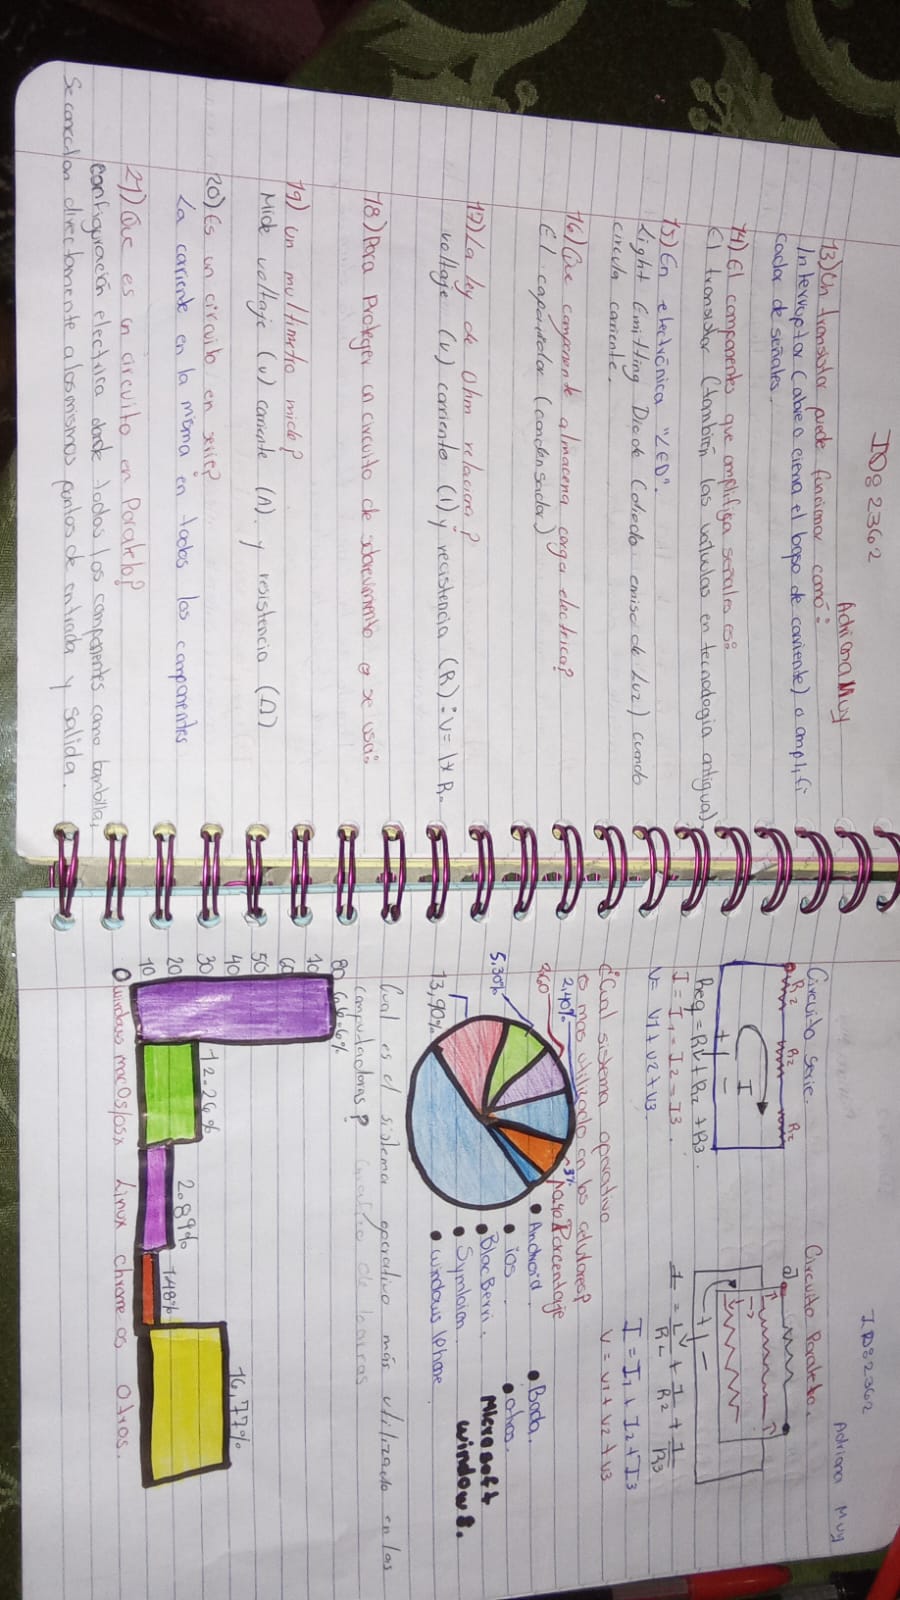 ID: 2362
Adriana Muy
13) Un transistor puede funcionar como:
Interruptor (abre o cierra el paso de corriente) o amplifi
cador de señales.
14) El componentes que amplifiga señales es:
El transistor (también las valvulas en tecnologia antigua)
15) En electrónica "LED".
Light Emitting Diode (diodo emisor de Luz) cuando
circula corriente.
16) Que componente almacena carga electrica?
El capacitador (condensador)
17) La ley de Ohm relaciona?
Voltaje (v) corriente (I) y recistencia (R): V= I*R.
18) Para Proteger un circuito de se usa:
19) Un multimetro mide?
Mide voltaje (v) corriente (A). y resistencia (Ω)
20) Es un circuito en serie?
La corriente en la misma en todos los componentes
21) Que es un circuito en Paralelo?
configuración electrica donde todos los componentes como bombilla,
Se conectan directamente a los mismos puntos de entrada y salida.
ID:2362
Adriana Muy
Circuito serie.
R2 R2 R2
I
+ -
Req = R1 + R2 + R3.
I = I1 = I2 = I3.
V= V1 + V2 + V3.
Circuito Paralelo.
+ -
I = I1 + I2 + I3
V = V1 + V2 + V3
¿Cual sistema operativo
o mas utilizado en los celulares?
Porcentaje
2,40%
3,60
5,30%
13,90%
3%
• Android.
• ios.
• BlacBerri.
• Symbian.
• windows Iphone.
• Bada.
• otros.
Microsoft
windows.
Cual es el sistema operativo más utilizado en las
computadoras?
80
70
60
50
40
30
20
10
0
66.6%
12.26%
2.89%
1.48%
16,77%
windows macOs/osx Linux chrome os Otros.